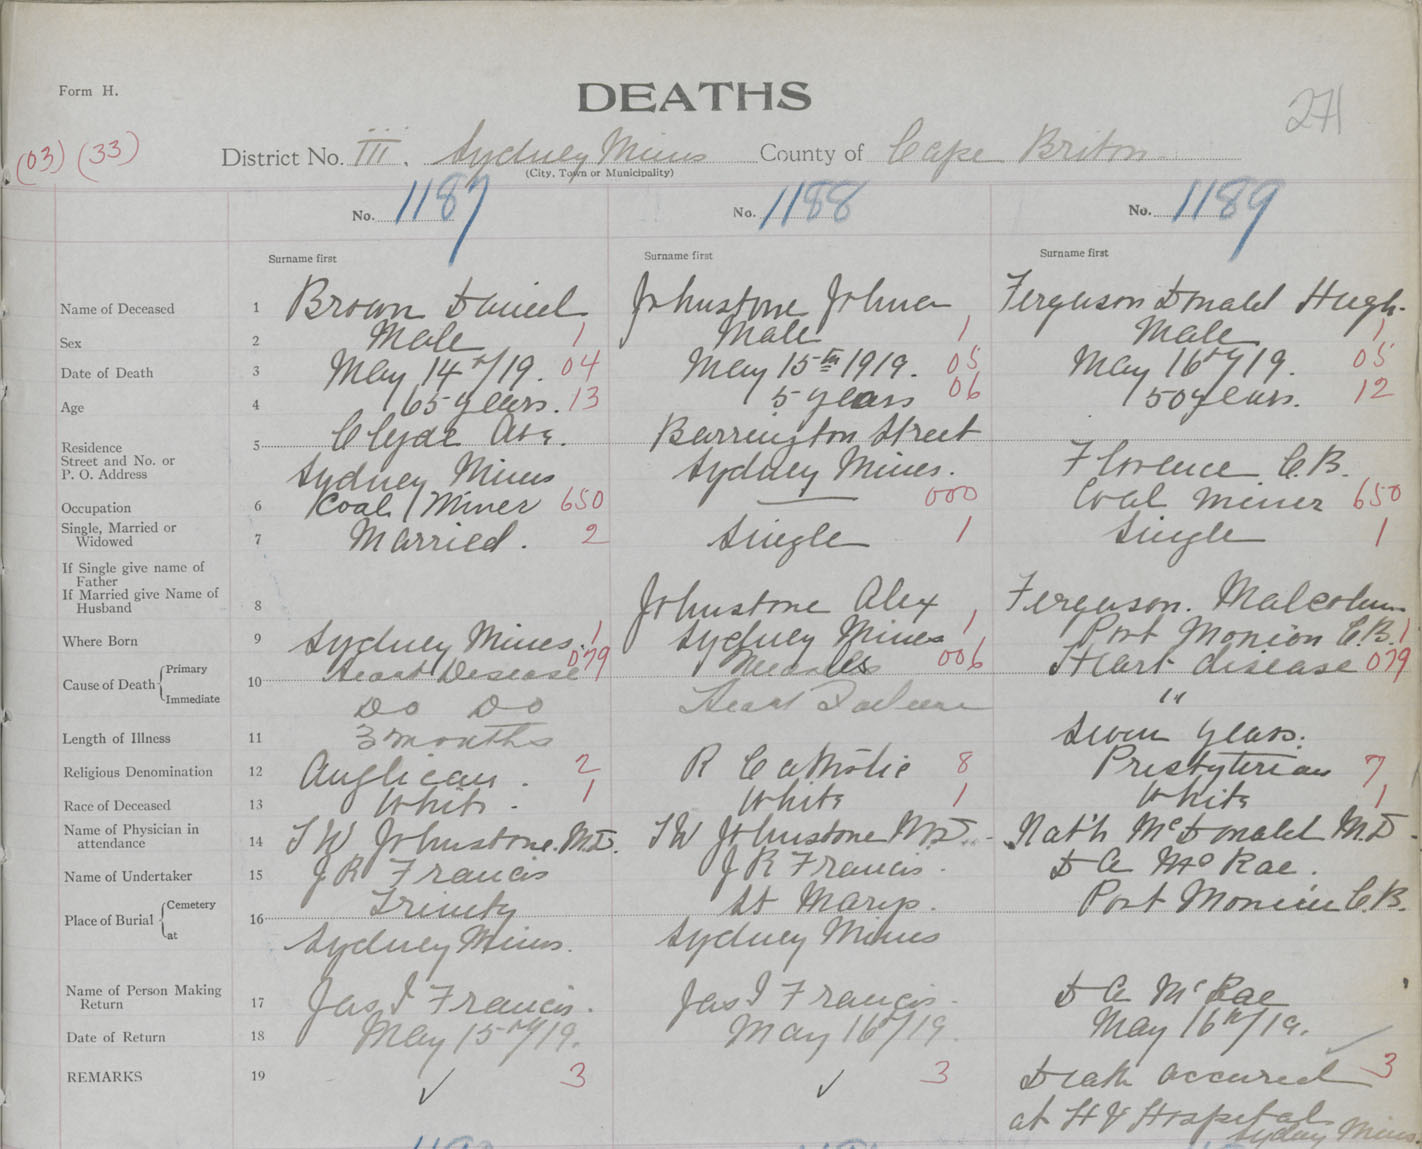 Form H.
DEATHS
271
(03) (33)
District No. III. Sydney Mines County of Cape Briton
(City, Town or Municipality)
No. 1187 No. 1188 No. 1189
Surname first Surname first Surname first
Name of Deceased 1 Brown Daniel Johnstone Ferguson Donald Hugh.
Sex 2 Male 1 Male 1 Male 1
Date of Death 3 May 14th/19. 04 May 15th 1919. 05 May 16th/19. 05
Age 4 65 years. 13 5 years 06 50 years. 12
Residence 5 Clyde Ave. Barrington Street
Street and No. or
P. O. Address Sydney Mines Sydney Mines. Florence C.B.
Occupation 6 Coal Miner 650 — 000 Coal Miner 650
Single, Married or
Widowed 7 Married. 2 Single 1 Single 1
If Single give name of
Father
If Married give Name of
Husband 8 Johnstone Alex Ferguson. Malcolm
Where Born 9 Sydney Mines. 1 Sydney Mines 1 Port Morien C.B. 1
Cause of Death Primary 10 Heart Disease 079 Measles 006 Heart disease 079
Immediate Do Do Heart Failure "
Length of Illness 11 3 months Seven years.
Religious Denomination 12 Anglican. 2 R Catholic 8 Presbyterian 7
Race of Deceased 13 White. 1 White 1 White 1
Name of Physician in
attendance 14 T W Johnstone. M.D. T W Johnstone M.D. Nat'h McDonald M.D.
Name of Undertaker 15 J R Francis J R Francis. D A McRae.
Place of Burial Cemetery 16 Trinity St Marys. Port Morien C.B.
at Sydney Mines. Sydney Mines
Name of Person Making
Return 17 Jas I Francis. Jas I Francis. D A McRae
Date of Return 18 May 15th/19. May 16th/19. May 16th/19.
REMARKS 19 ✓ 3 ✓ 3 Death occured 3
at H Y Hospital
Sydney Mines.